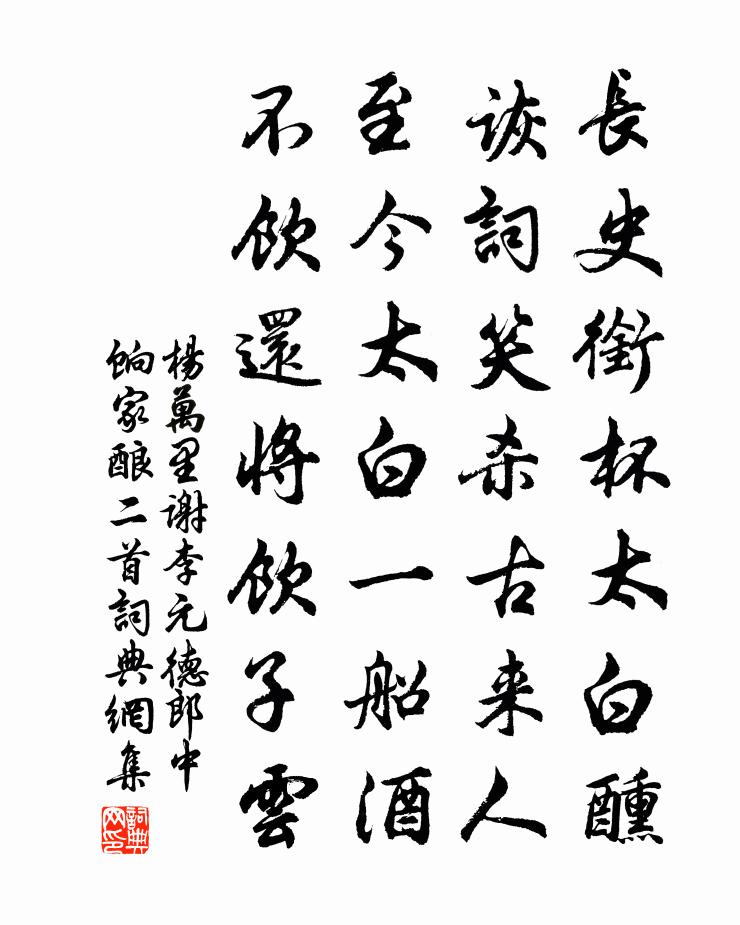 長史銜杯太白醺
詼詞笑杀古来人
至今太白一船酒
不飲還將飲子雲
楊萬里谢李元德郎中
餉家酿二首詞典網集
詞典网印